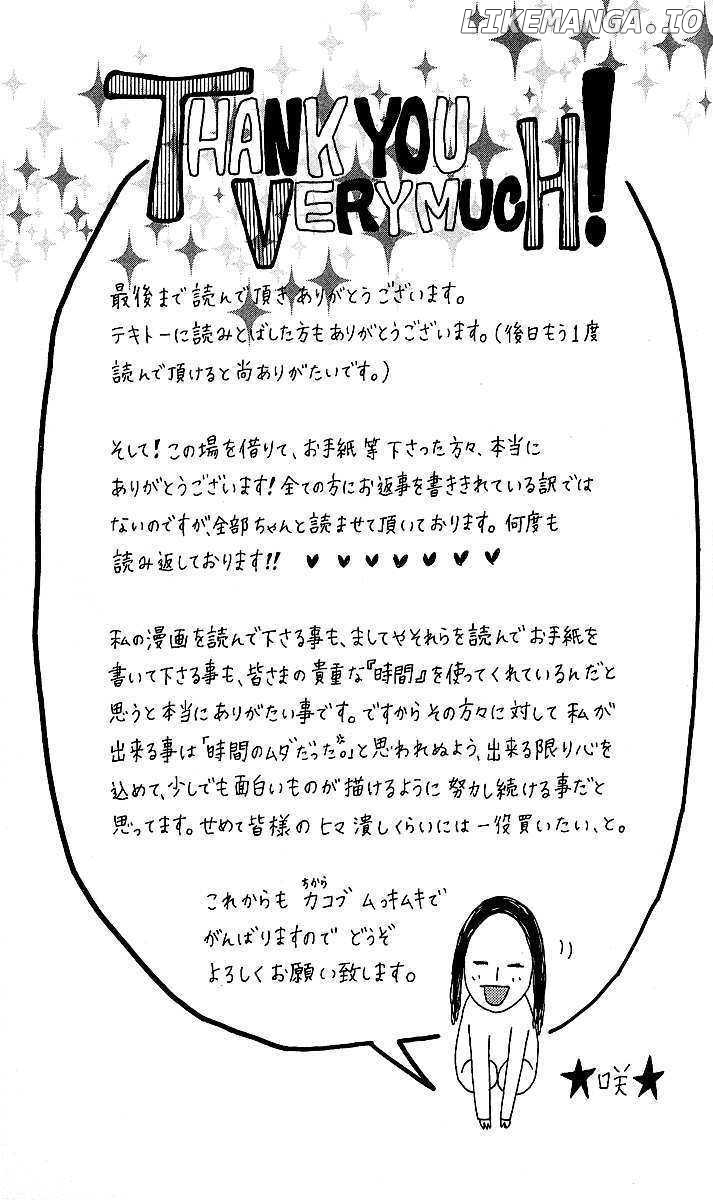 LIKEMANGA.IO
THANK YOU
VERY MUCH!
最後まで読んで頂きありがとうございます。
テキトーに読みとばした方もありがとうございます。(後日もう1度
読んで頂けると尚ありがたいです。)
そして!この場を借りて、お手紙等下さった方々、本当に
ありがとうございます!全ての方にお返事を書ききれている訳では
ないのですが、全部ちゃんと読ませて頂いております。何度も
読み返しております!! ♥ ♥ ♥ ♥ ♥ ♥ ♥
私の漫画を読んで下さる事も、ましてやそれらを読んでお手紙を
書いて下さる事も、皆さまの貴重な『時間』を使ってくれているんだと
思うと本当にありがたい事です。ですからその方々に対して私が
出来る事は「時間のムダだった。」と思われぬよう、出来る限り心を
込めて、少しでも面白いものが描けるように努力し続ける事だと
思ってます。せめて皆様のヒマ潰しくらいには一役買いたい、と。
ちから
これからも 力コブ ムッキムキで
がんばりますので どうぞ
よろしくお願い致します。
★咲★